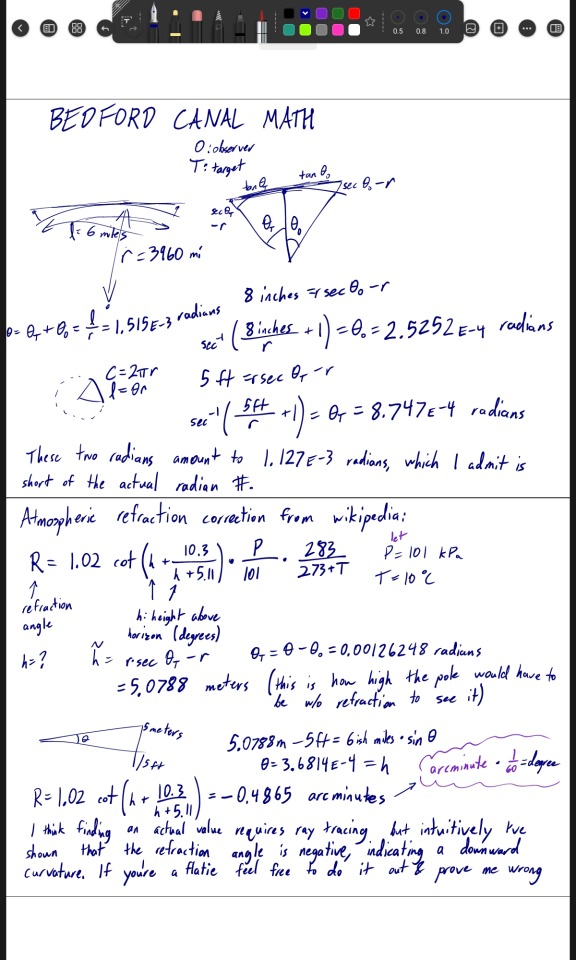 0.5 0.8 1.0
BEDFORD CANAL MATH
O: observer
T: target
tan θ_T tan θ_o
sec θ_T - r
sec θ_o - r
θ_T θ_o
l = 6 miles
r = 3960 mi
8 inches = r sec θ_o - r
θ = θ_T + θ_o = l/r = 1.515E-3 radians
sec⁻¹(8 inches/r + 1) = θ_o = 2.5252E-4 radians
C = 2πr
l = θr
5 ft = r sec θ_T - r
sec⁻¹(5ft/r + 1) = θ_T = 8.747E-4 radians
These two radians amount to 1.127E-3 radians, which I admit is
short of the actual radian #.
Atmospheric refraction correction from wikipedia:
R = 1.02 cot(h + 10.3/(h + 5.11)) · P/101 · 283/(273+T)
let
P = 101 kPa
T = 10°C
↑
refraction
angle
h: height above
horizon (degrees)
h = ?
h̃ = r sec θ_T - r
θ_T = θ - θ_o = 0.00126248 radians
= 5.0788 meters (this is how high the pole would have to
be w/o refraction to see it)
θ
5 meters
5ft
5.0788m - 5ft = 6ish miles · sin θ
θ = 3.6814E-4 = h
arcminute · 1/60 = degree
R = 1.02 cot(h + 10.3/(h + 5.11)) = -0.4865 arcminutes
I think finding an actual value requires ray tracing but intuitively I've
shown that the refraction angle is negative, indicating a downward
curvature. If you're a flatie feel free to do it out & prove me wrong